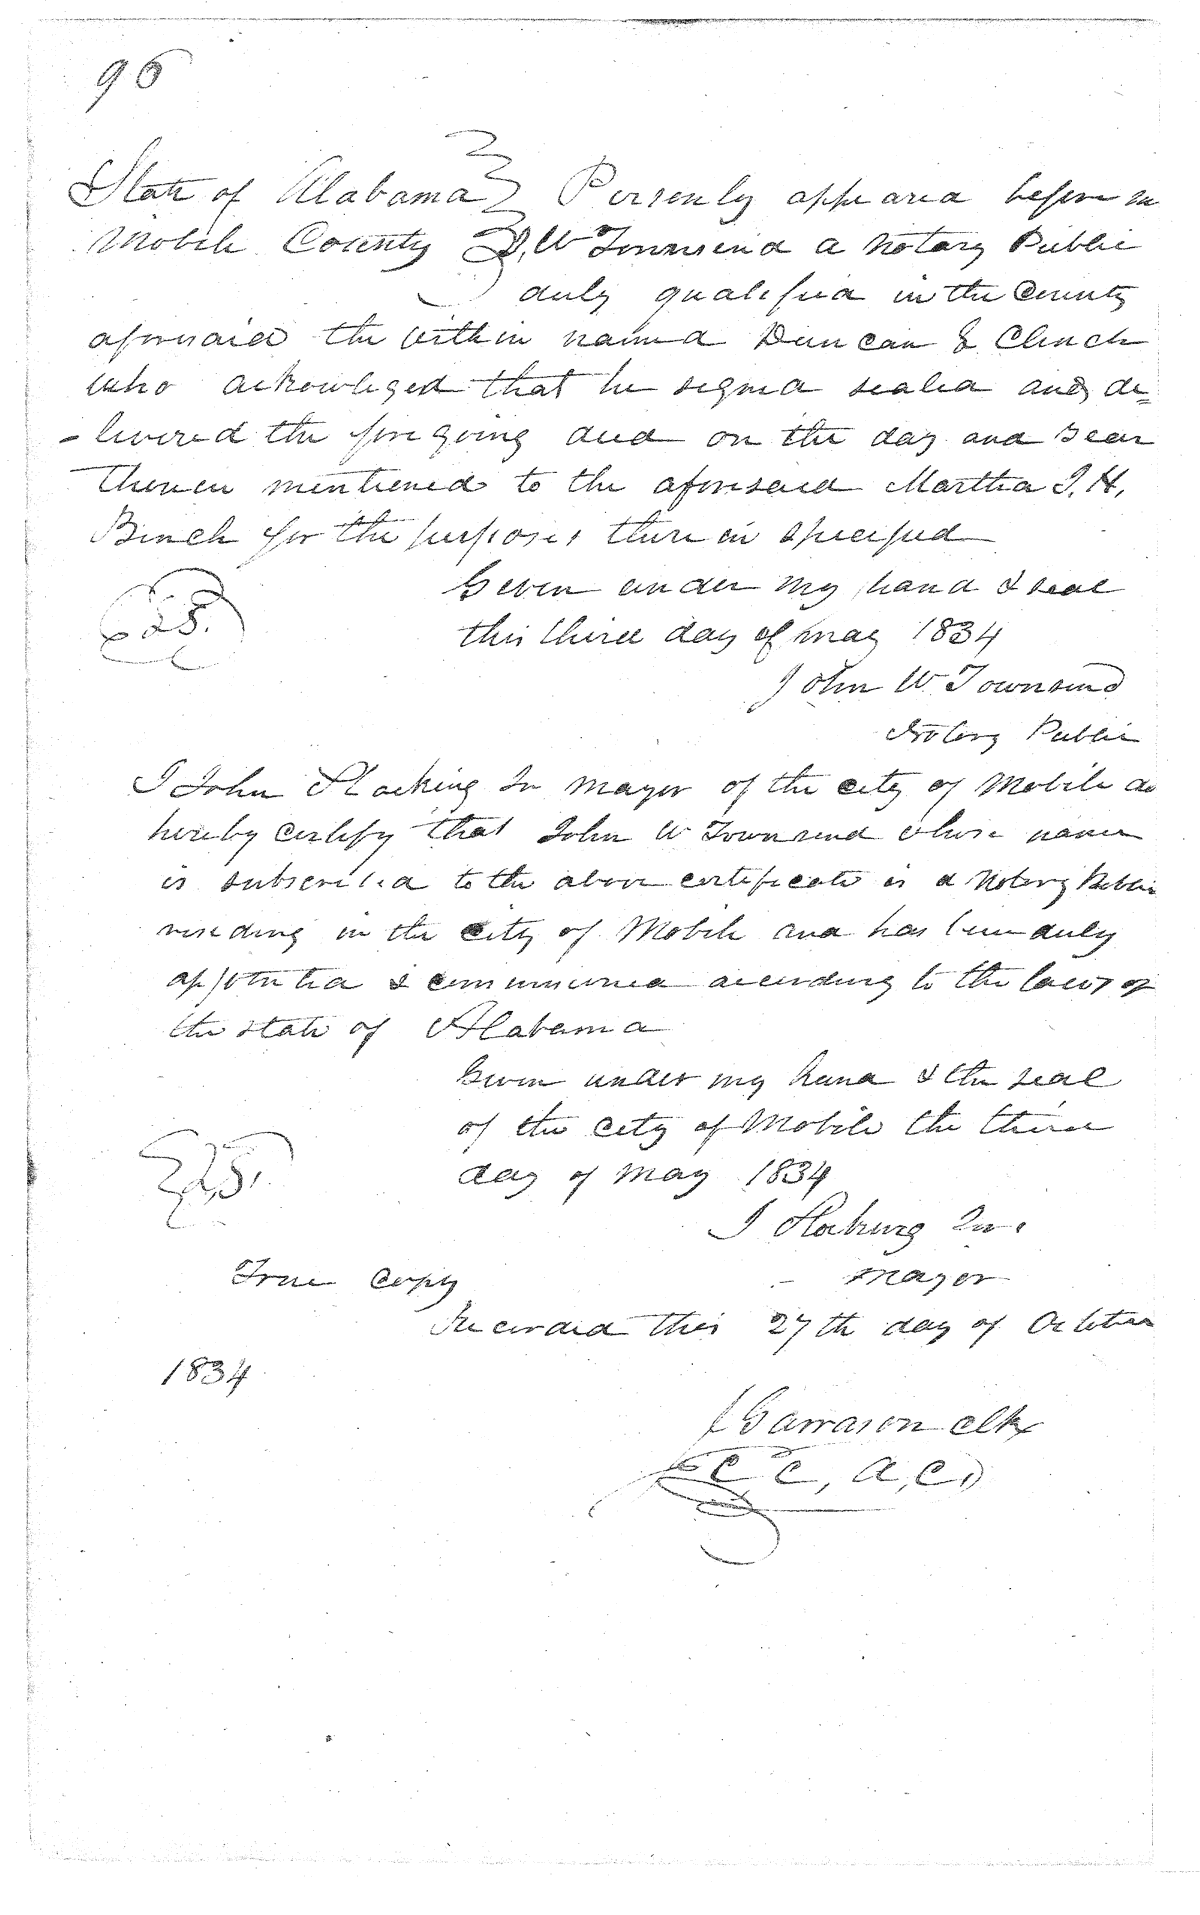 96
State of Alabama } Personly appeared before me
Mobile County } J. W Townsend a Notary Public
duly qualified in the County
aforesaid the within named Duncan L Clinch
who acknowleged that he signed sealed and de=
-livered the foregoing deed on the day and year
therein mentioned to the aforesaid Martha J. H.
Binch for the purposes therein specified
Given under my hand & seal
L.S.
this third day of may 1834
John W. Townsend
Notary Public
I John Stocking Jr mayor of the city of Mobile do
hereby certify that John W Townsend whose name
is subscribed to the above certificate is a Notary Public
residing in the city of Mobile and has been duly
appointed & commissioned according to the laws of
the state of Alabama
Given under my hand & the seal
of the city of Mobile the third
L.S.
day of may 1834
J Stocking Jr.
True Copy mayor
Recorded this 27th day of October
1834
Garrason clk
C C, A, C,